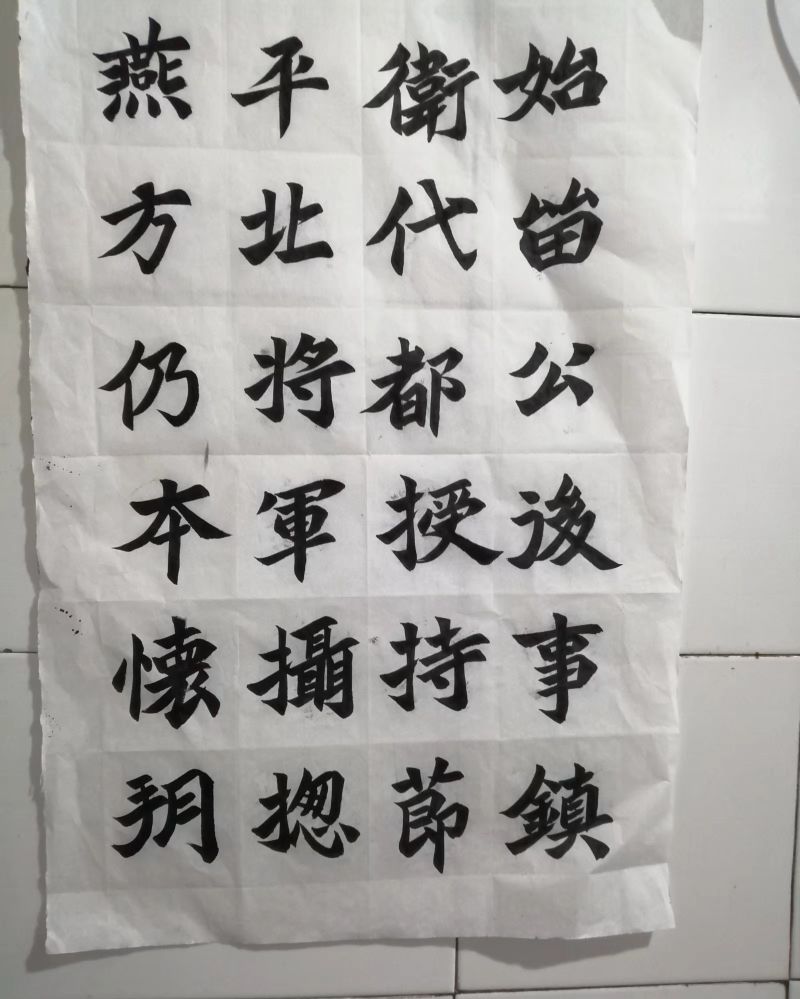 始留公後事鎮
衛代都授持莭
平北將軍攝揔
燕方仍本懷朔